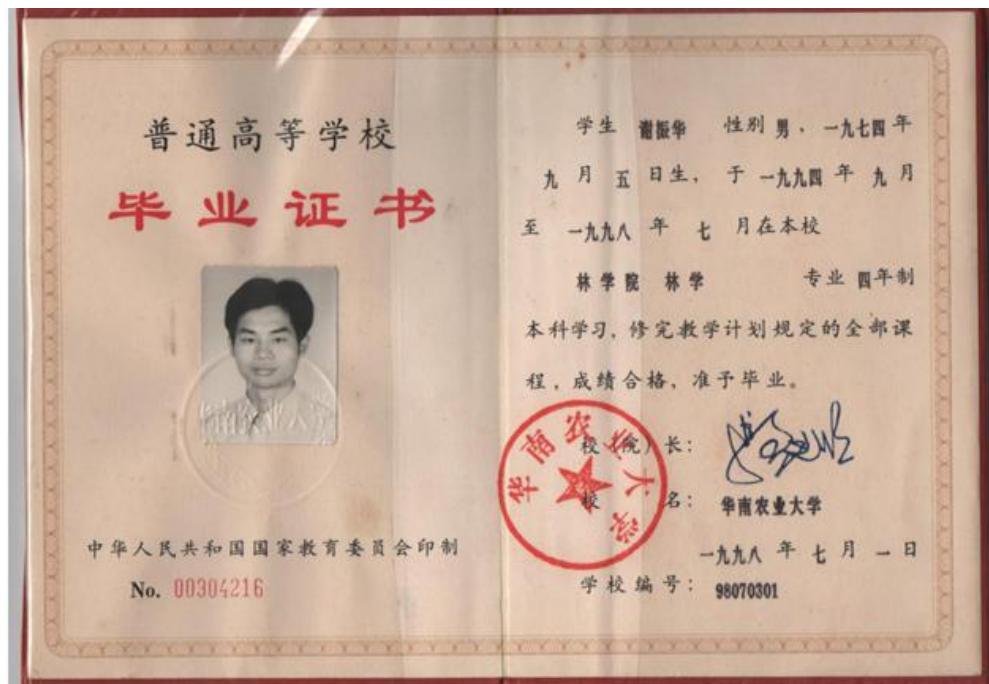 普通高等学校
毕业证书
华南农业大学
中华人民共和国国家教育委员会印制
No. 00304216
学生 谢振华 性别 男、一九七四年
九月五日生，于一九九四年九月
至一九九八年七月在本校
林学院 林学 专业 四年制
本科学习，修完教学计划规定的全部课
程，成绩合格，准予毕业。
校（院）长：
华南农业大学
校名：华南农业大学
一九九八年七月一日
学校编号：98070301